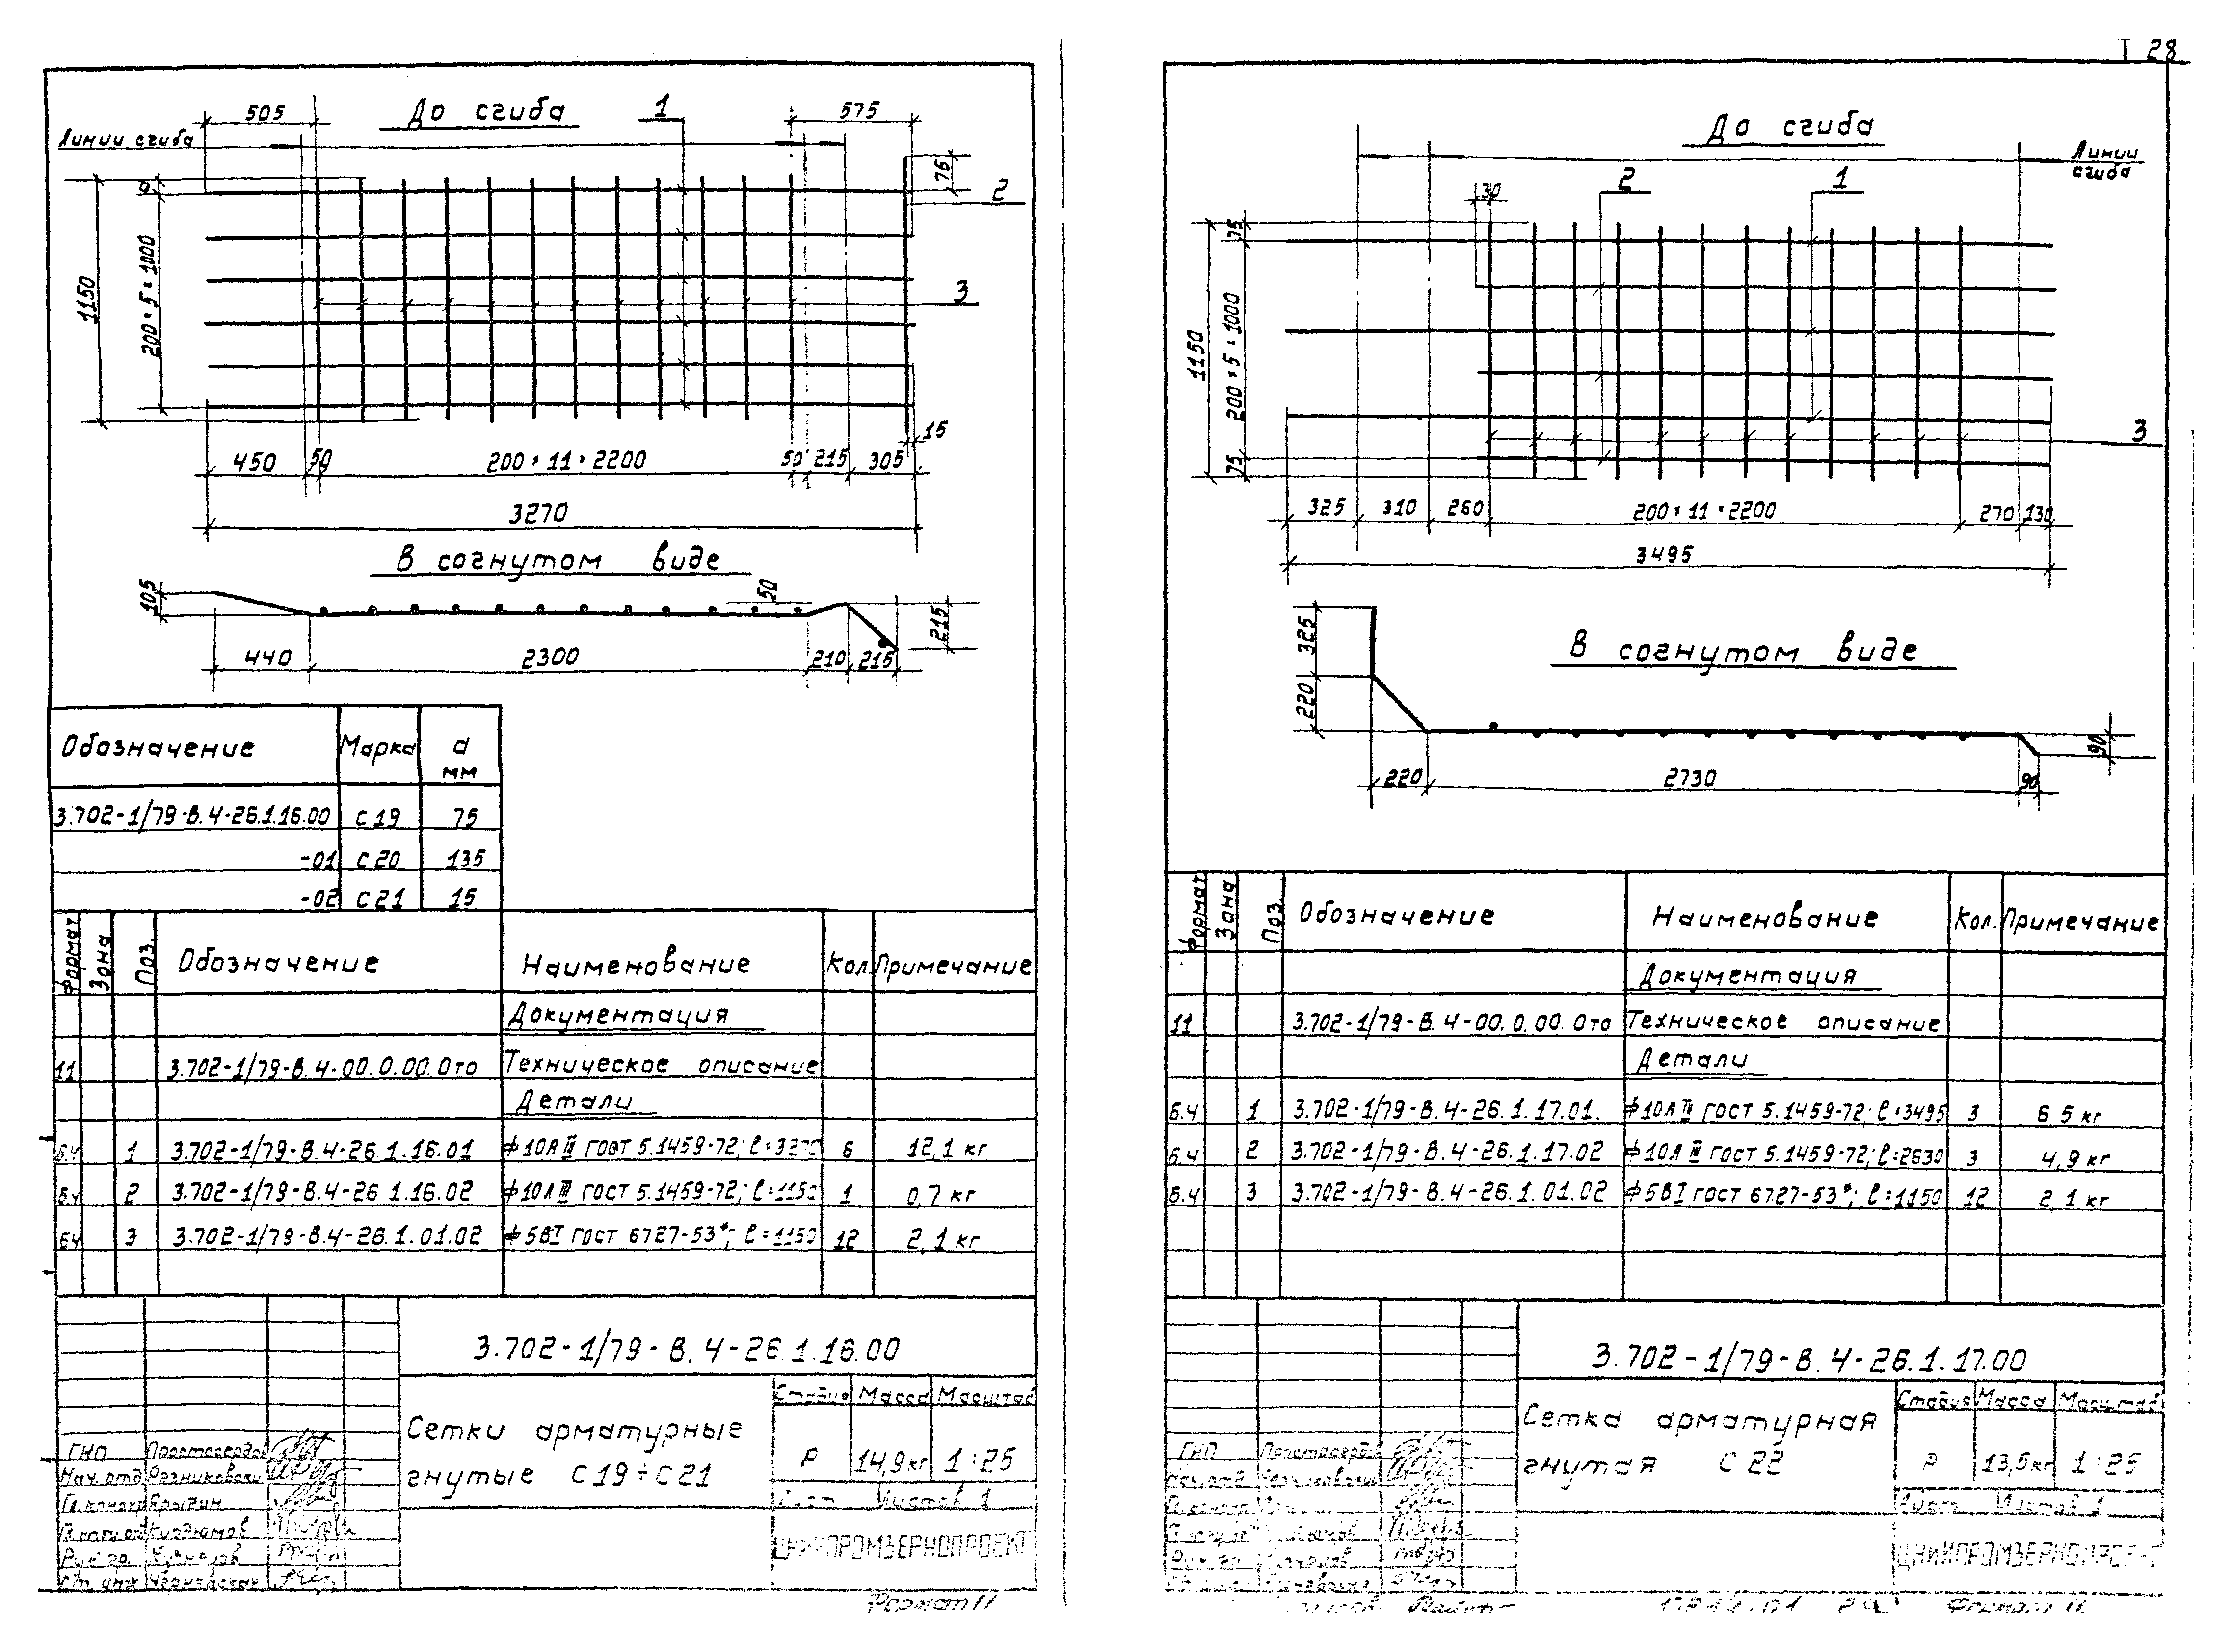 28
До сгиба
1
505
575
Линии сгиба
75
2
1150
200×5=1000
3
15
450
50
200×11=2200
50
215
305
3270
В согнутом виде
105
50
215
440
2300
210
215
Обозначение Марка d мм
3.702-1/79-В.4-26.1.16.00 С19 75
-01 С20 135
-02 С21 15
Формат Зона Поз. Обозначение Наименование Кол. Примечание
Документация
11 3.702-1/79-В.4-00.0.00.0то Техническое описание
Детали
Б.Ч 1 3.702-1/79-В.4-26.1.16.01 ф10АIII ГОСТ 5.1459-72; ℓ=3270 6 12,1 кг
Б.Ч 2 3.702-1/79-В.4-26 1.16.02 ф10АIII ГОСТ 5.1459-72; ℓ=1150 1 0,7 кг
БЧ 3 3.702-1/79-В.4-26.1.01.02 ф5ВI ГОСТ 6727-53*; ℓ=1150 12 2,1 кг
3.702-1/79-В.4-26.1.16.00
Сетки арматурные
гнутые С19÷С21
Стадия Масса Масштаб
Р 14,9кг 1:25
Лист Листов 1
ГИП
Нач. отд Резниковский
Гл. констр Ярыгин
Рук. гр. Кузнецов
Ст. инж
ЦНИИПРОМЗЕРНОПРОЕКТ
Формат 11
До сгиба
Линии
сгиба
2
1
30
75
1150
200×5=1000
75
3
325
310
260
200×11=2200
270
130
3495
В согнутом виде
325
220
90
220
2730
90
Формат Зона Поз. Обозначение Наименование Кол. Примечание
Документация
11 3.702-1/79-В.4-00.0.00.0то Техническое описание
Детали
Б.Ч 1 3.702-1/79-В.4-26.1.17.01. ф10АIII ГОСТ 5.1459-72; ℓ=3495 3 6,5 кг
Б.Ч 2 3.702-1/79-В.4-26.1.17.02 ф10АIII ГОСТ 5.1459-72; ℓ=2630 3 4,9 кг
Б.Ч 3 3.702-1/79-В.4-26.1.01.02 ф5ВI ГОСТ 6727-53*; ℓ=1150 12 2,1 кг
3.702-1/79-В.4-26.1.17.00
Сетка арматурная
гнутая С22
Стадия Масса Масштаб
Р 13,5кг 1:25
Лист Листов 1
ГИП
ЦНИИПРОМЗЕРНОПРОЕКТ
Формат 11